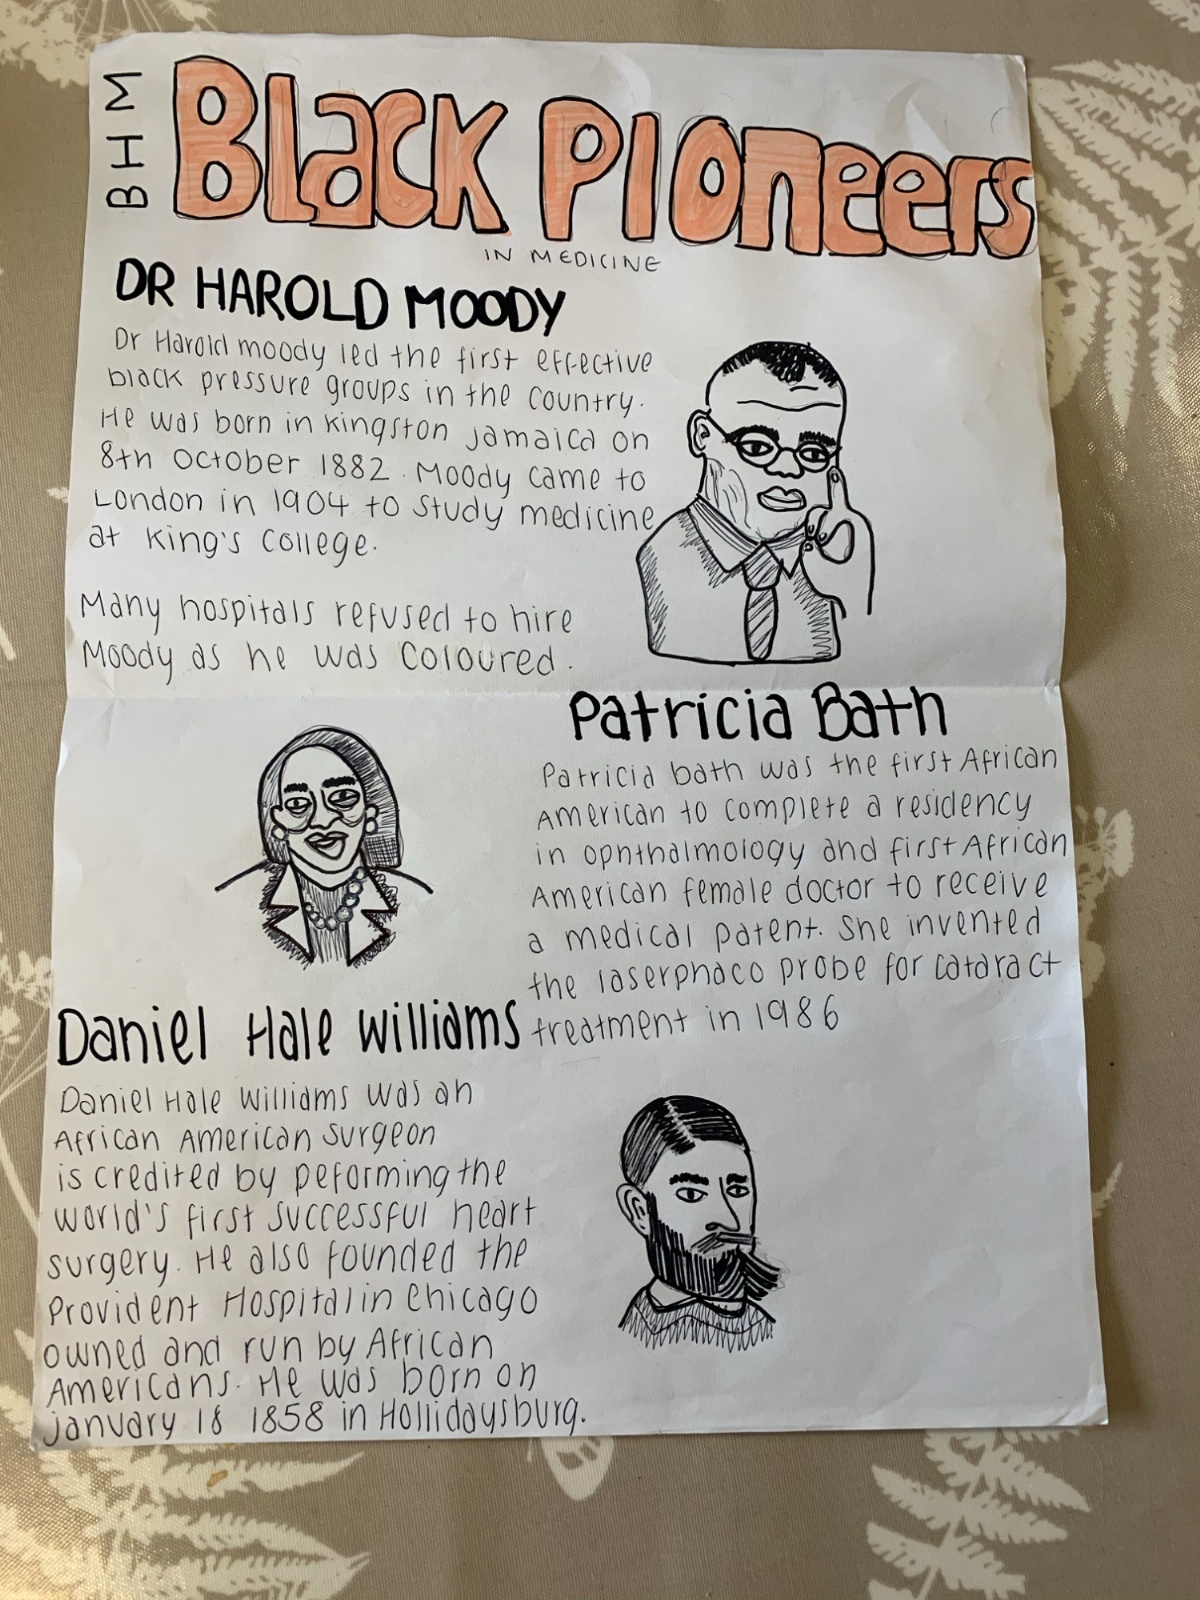 BHM
Black Pioneers
IN MEDICINE
DR HAROLD MOODY
Dr Harold moody led the first effective
black pressure groups in the country.
He was born in Kingston jamaica on
8th October 1882. Moody came to
London in 1904 to study medicine
at King's College.
Many hospitals refused to hire
Moody as he was coloured.
Patricia Bath
Patricia bath was the first African
American to complete a residency
in ophthalmology and first African
American female doctor to receive
a medical patent. She invented
the laserphaco probe for cataract
treatment in 1986
Daniel Hale Williams
Daniel Hale Williams was an
African American surgeon
is credited by peforming the
world's first successful heart
surgery. He also founded the
Provident Hospital in Chicago
owned and run by African
Americans. He was born on
january 18 1858 in Hollidaysburg.